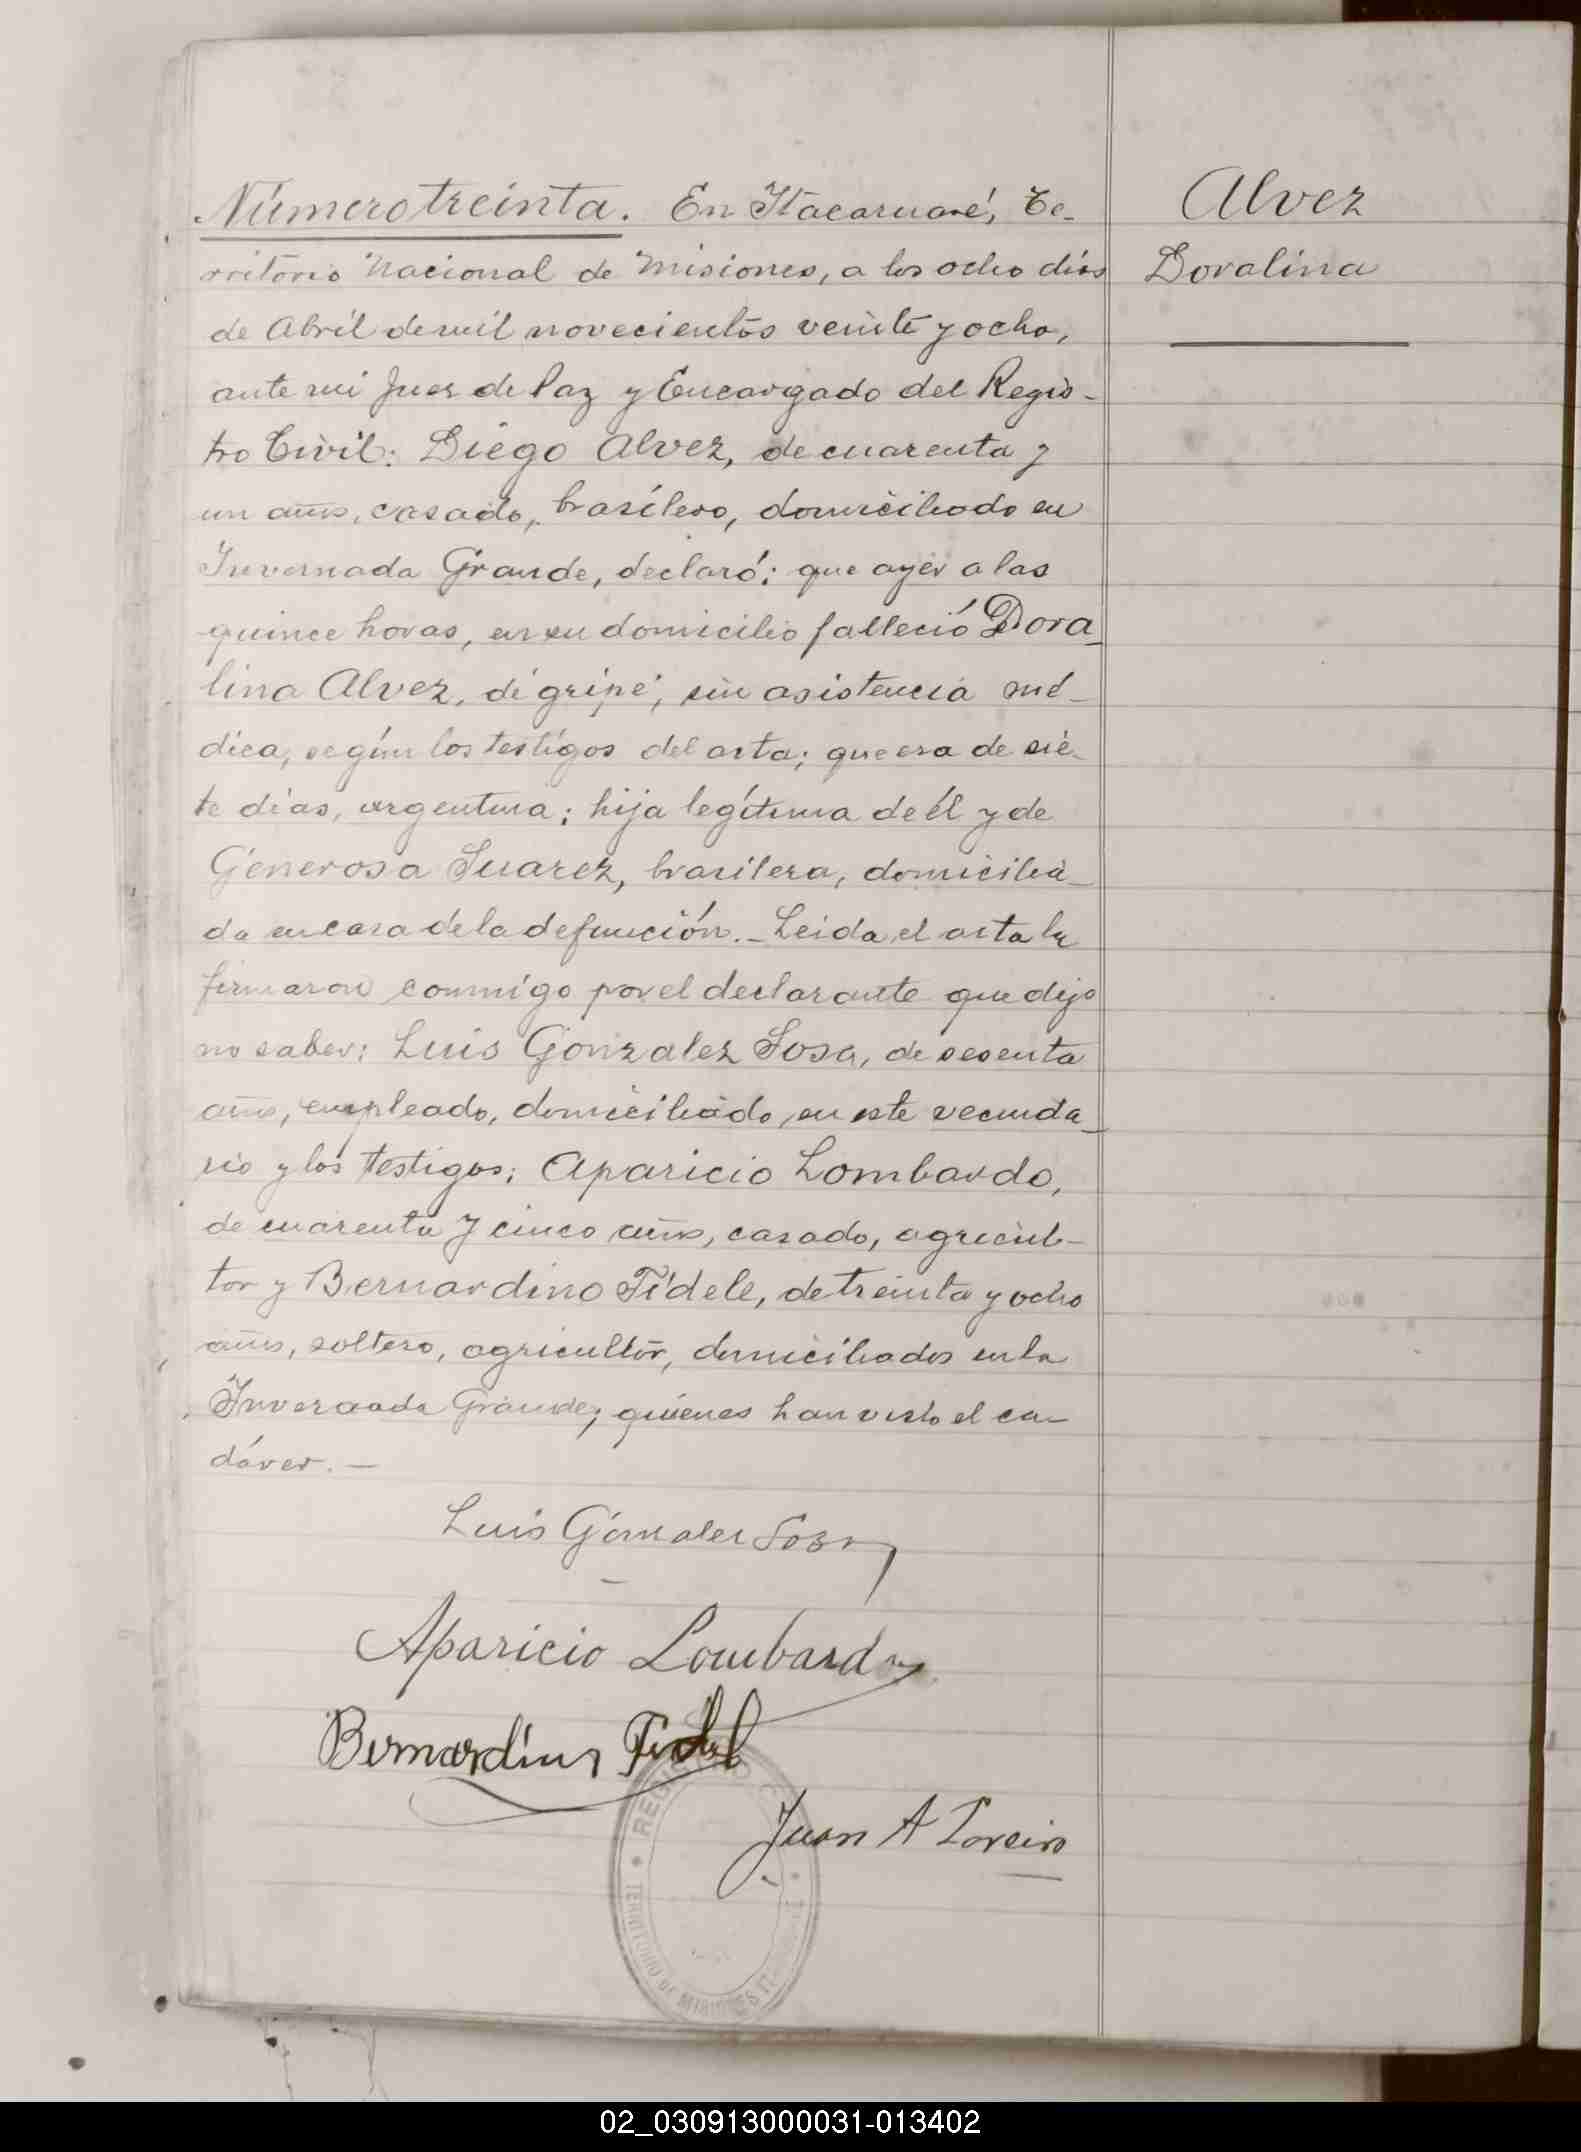 Número treinta. En Itacaruaré, Te-
rritorio Nacional de Misiones, a los ocho días
de Abril de mil novecientos veinte y ocho,
ante mi Juez de Paz y Encargado del Regis-
tro Civil: Diego Alvez, de cuarenta y
un años, casado, brasilero, domiciliado en
Invernada Grande, declaró: que ayer a las
quince horas, en su domicilio falleció Dora-
lina Alvez, de gripe, sin asistencia mé-
dica, según los testigos del acta; que era de sie-
te días, argentina; hija legítima de él y de
Generosa Suarez, brasilera, domicilia-
da en casa de la defunción.- Leida el acta la
firmaron conmigo por el declarante que dijo
no saber: Luis Gonzalez Sosa, de sesenta
años, empleado, domiciliado en este vecinda-
rio y los testigos: Aparicio Lombardo,
de cuarenta y cinco años, casado, agricul-
tor y Bernardino Fidele, de treinta y ocho
años, soltero, agricultor, domiciliados en la
Invernada Grande, quienes han visto el ca-
dáver.-
Luis Gonzalez Sosa
Aparicio Lombardo
Bernardino Fidel
Juan A
REGISTRO C
TERRITORIO DE MISIONES
Alvez
Doralina
02_030913000031-013402